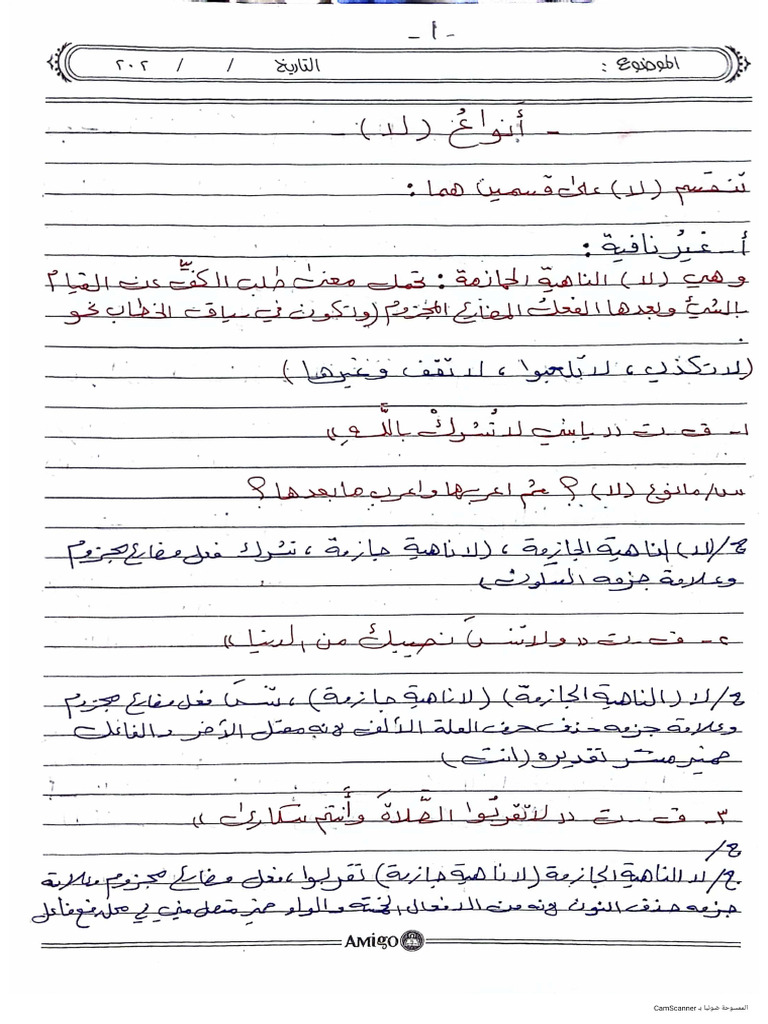 - ١ -
الموضوع : التاريخ / / ٢٠٢
- أنواعُ (لا) -
تنقسم (لا) على قسمين هما :
أ - غيرُ نافية :
وهي (لا) الناهية الجازمة : تحمل معنى طلب الكفِّ عن القيام
بالشيء وبعدها الفعل المضارع المجزوم (وتكون في سياق الخطاب نحو
(لا تكذب ، لا تلعبوا ، لا تقف وغيرها)
١- ق . ت (( يا بني لا تُشركْ باللَّهِ ))
س/ ما نوع (لا) ؟ ثم اعربها واعرب ما بعدها ؟
ج/ (لا) الناهية الجازمة ، (لا ناهية جازمة ، تشرك فعل مضارع مجزوم
وعلامة جزمه السكون)
٢- ق . ت (( ولا تنسَ نصيبك من الدنيا ))
ج/ لا (الناهية الجازمة) (لا ناهية جازمة) ، تنسَ فعل مضارع مجزوم
وعلامة جزمه حذف حرف العلة الألف لانه معتل الآخر والفاعل
ضمير مستتر تقديره (انت)
٣- ق . ت (( لا تقربُوا الصَّلاةَ وأَنتم سُكارى ))
ج/
ج/ لا الناهية الجازمة (لا ناهية جازمة) تقربوا ، فعل مضارع مجزوم وعلامة
جزمه حذف النون لانه من الافعال الخمسة والواو ضمير متصل مبني في محل رفع فاعل
AMIGO
الممسوحة ضوئيا بـ CamScanner